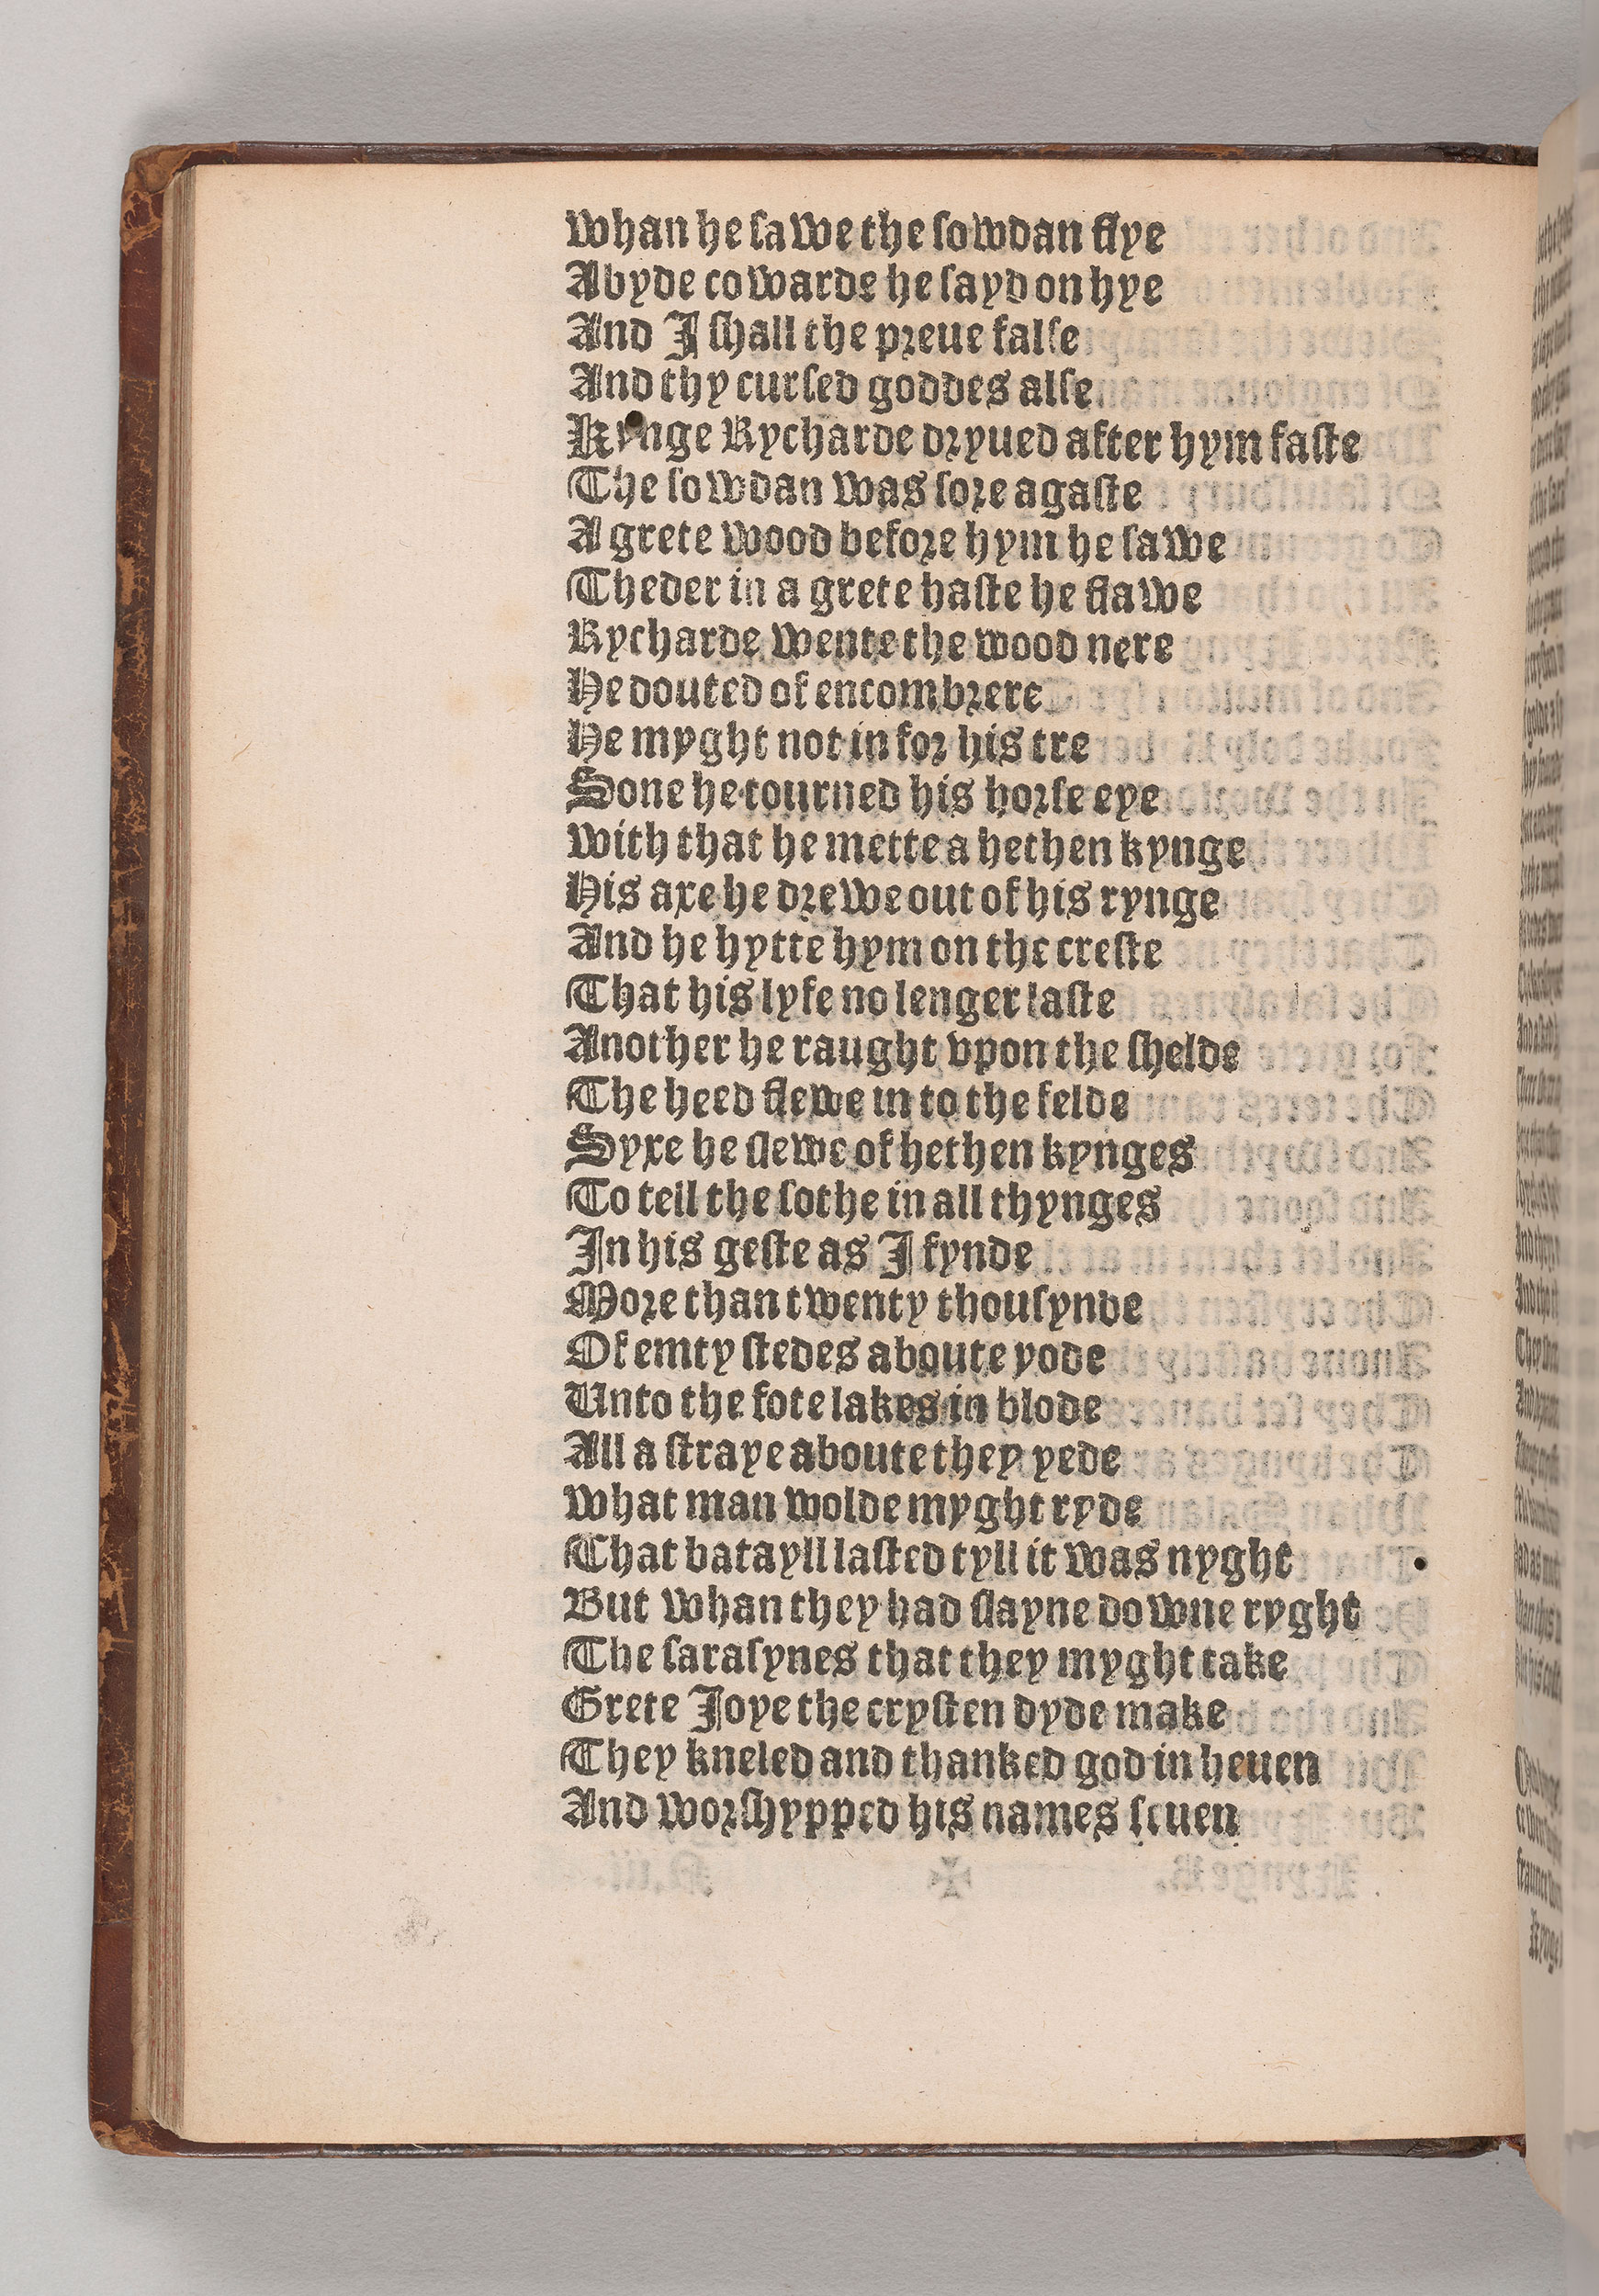 Whan he sawe the sowdan flye
Abyde cowarde he sayd on hye
And I shall the preue false
And thy cursed goddes alse
Kynge Rycharde dryued after hym faste
The sowdan was sore agaste
A grete wood before hym he sawe
Theder in a grete haste he flawe
Rycharde wente the wood nere
He douted of encombrere
He myght not in for his tre
Sone he tourned his horse eye
With that he mette a hethen kynge
His axe he drewe out of his rynge
And he hytte hym on the creste
That his lyfe no lenger laste
Another he raught vpon the shelde
The heed flewe in to the felde
Syxe he slewe of hethen kynges
To tell the sothe in all thynges
In his geste as I fynde
More than twenty thousynde
Of emty stedes aboute yode
Unto the fote lakes in blode
All a straye aboute they yede
What man wolde myght ryde
That batayll lasted tyll it was nyght
But whan they had slayne downe ryght
The sarasynes that they myght take
Grete Joye the crysten dyde make
They kneled and thanked god in heuen
And worshypped his names seuen